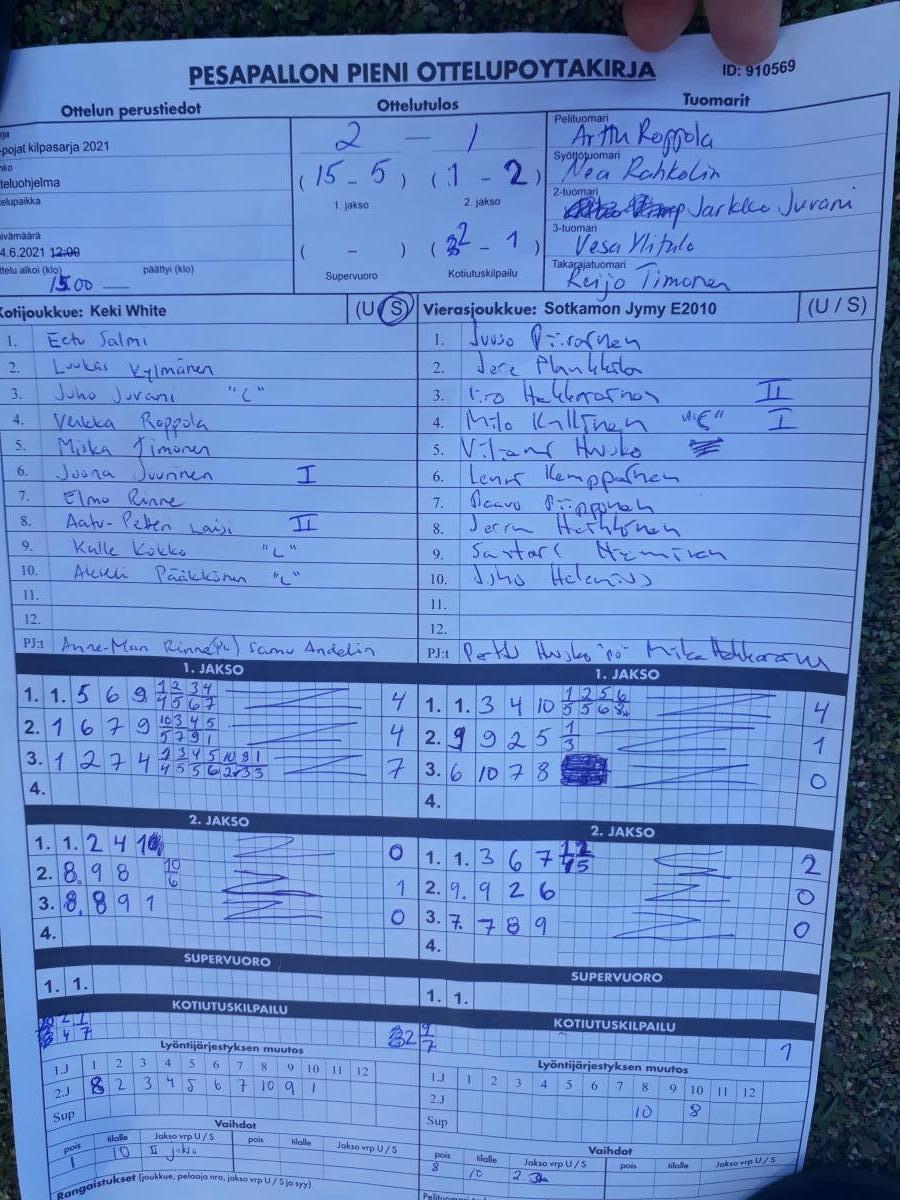 PESAPALLON PIENI OTTELUPOYTAKIRJA
ID: 910569
Ottelun perustiedot
-pojat kilpasarja 2021
teluohjelma
elupaikka
4.6.2021 12:00
telu alkoi (klo) päättyi (klo)
15.00
Ottelutulos
2 — 1
( 15 - 5 ) ( 1 - 2 )
1. jakso 2. jakso
( - ) ( 2 - 1 )
Supervuoro Kotiutuskilpailu
Tuomarit
Pelituomari
Arttu Roppola
Syöttötuomari
Nea Rahkolin
2-tuomari
Jarkko Juvani
3-tuomari
Vesa Ylitulo
Takarajatuomari
Reijo Timonen
Kotijoukkue: Keki White (U / S)
1. Eetu Salmi
2. Luukas Kylmänen
3. Juho Juvani "L"
4. Veikka Roppola
5. Miska Timonen
6. Joona Juurinen I
7. Elmo Rinne
8. Aatu-Peteri Laisi II
9. Kalle Kokko "L"
10. Akseli Pääkkönen "L"
11.
12.
PJ:t Anne-Mari Rinne (PJ) Samu Andelin
Vierasjoukkue: Sotkamon Jymy E2010 (U / S)
1. Juuso Piirainen
2. Jere
3. Iiro Heikkarainen II
4. Milo Kyllönen I
5. Viljami Husko
6. Lenni Kemppainen
7. Paavo Piipponen
8. Heikkinen
9. Santari
10. Juho Halenius
11.
12.
PJ:t Perttu Husko "PJ" Mika
1. JAKSO
1. 1. 5 6 9 1 2 3 4 4
4 5 6 7
2. 1 6 7 9 10 3 4 5 4
5 7 9 1
3. 1 2 7 4 2 3 4 5 10 9 1 7
4 5 5 6 2 3 3
4.
1. JAKSO
1. 1. 3 4 10 1 2 5 6 4
5 5 6 8
2. 9 9 2 5 1 1
3
3. 6 10 7 8 0
4.
2. JAKSO
1. 1. 2 4 1 0
2. 8. 9 8 10 1
6
3. 8. 8 9 1 0
4.
2. JAKSO
1. 1. 3 6 7 1 2 2
4 5
2. 9. 9 2 6 0
3. 7. 7 8 9 0
4.
SUPERVUORO
1. 1.
SUPERVUORO
1. 1.
KOTIUTUSKILPAILU
2 1 2
4 7
KOTIUTUSKILPAILU
2 1
7
Lyöntijärjestyksen muutos
1.J 1 2 3 4 5 6 7 8 9 10 11 12
2.J 8 2 3 4 5 6 7 10 9 1
Sup
Lyöntijärjestyksen muutos
1.J 1 2 3 4 5 6 7 8 9 10 11 12
2.J 10 8
Sup
Vaihdot
pois tilalle Jakso vrp U / S pois tilalle Jakso vrp U / S
1 10 II jakso
Vaihdot
pois tilalle Jakso vrp U / S pois tilalle Jakso vrp U / S
8 10
Rangaistukset (joukkue, pelaaja nro, jakso vrp U / S ja syy)